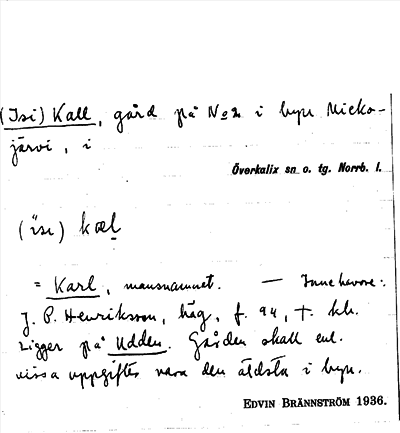 (Isi) Kall, gård på No 2 i byn Micko-
järvi, i
Överkalix sn o. tg. Norrb. l.
(ɩ̈sɩ) kal
= Karl, mansnamnet. — Innehavare:
J. P. Henriksson, häg, f. 94, †. kh.
Ligger på Udden. Gården skall enl.
vissa uppgifter vara den äldsta i byn.
EDVIN BRÄNNSTRÖM 1936.